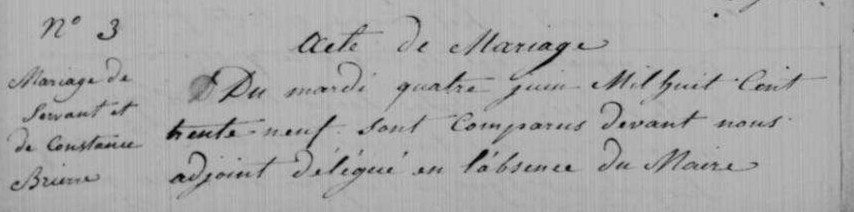 N° 3
Acte de Mariage
Mariage de
Servant et
de Constance
Brierre
Du mardi quatre juin Mil huit Cent
trente neuf. sont Comparus devant nous
adjoint délégué en l'absence du Maire